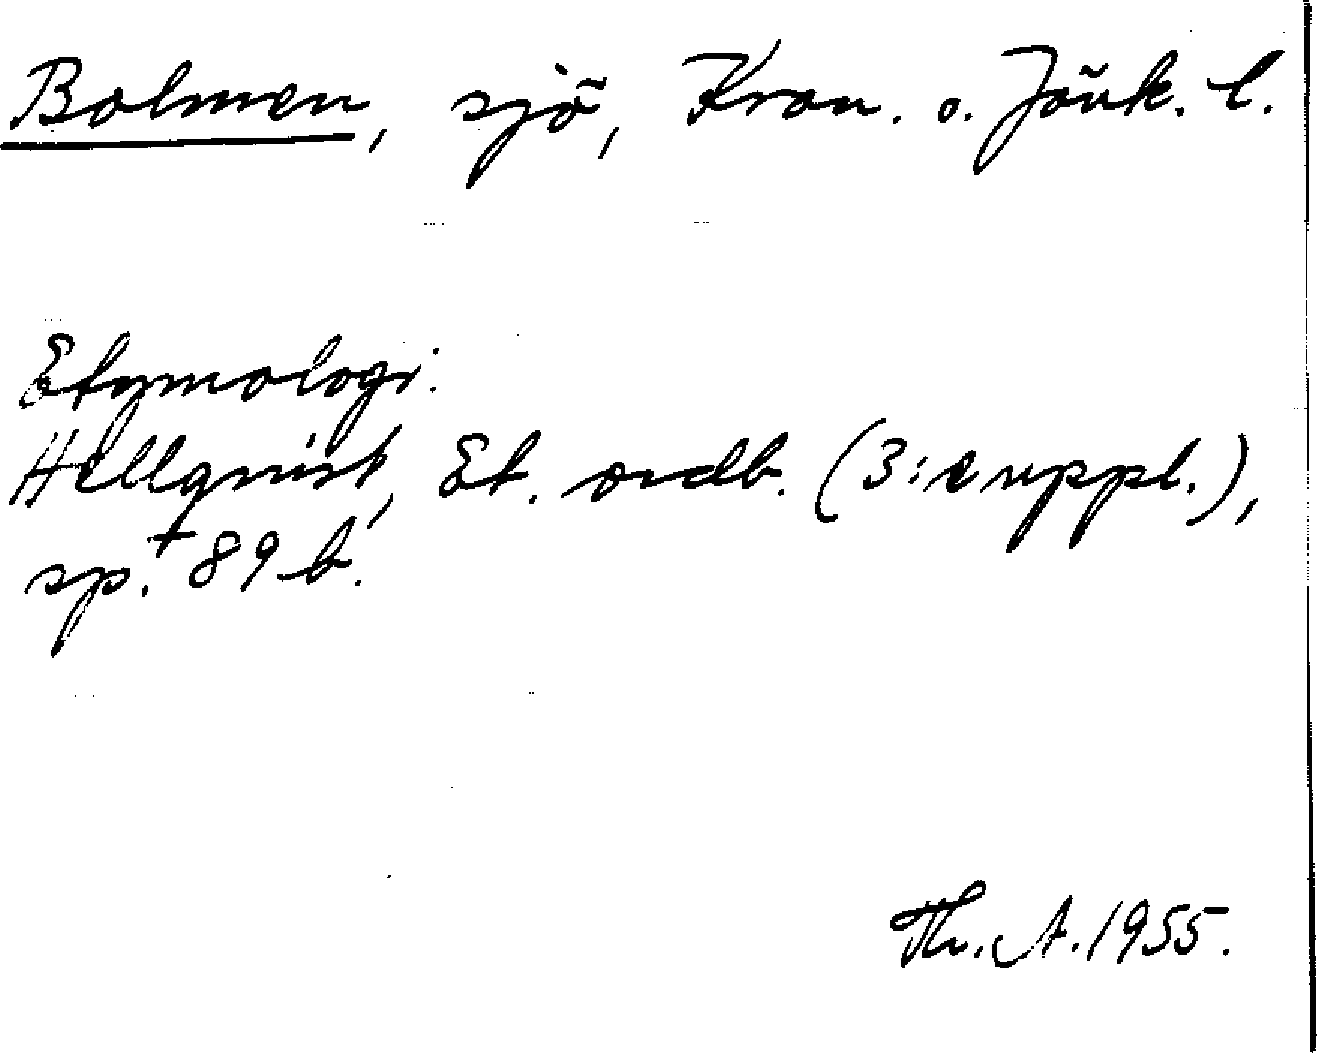 Bolmen, sjö, Kron. o. Jönk. l.
Etymologi:
Hellqvist, Et. ordb. (3:e uppl.),
sp. 89 b.
Th. A. 1955.